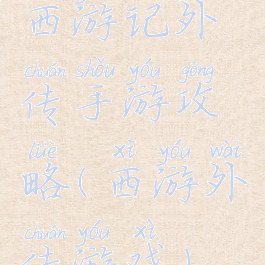 西游记外
chuán shǒu yóu gōng
传手游攻
lüè xī yóu wài
略(西游外
chuán yóu xì
传游戏)